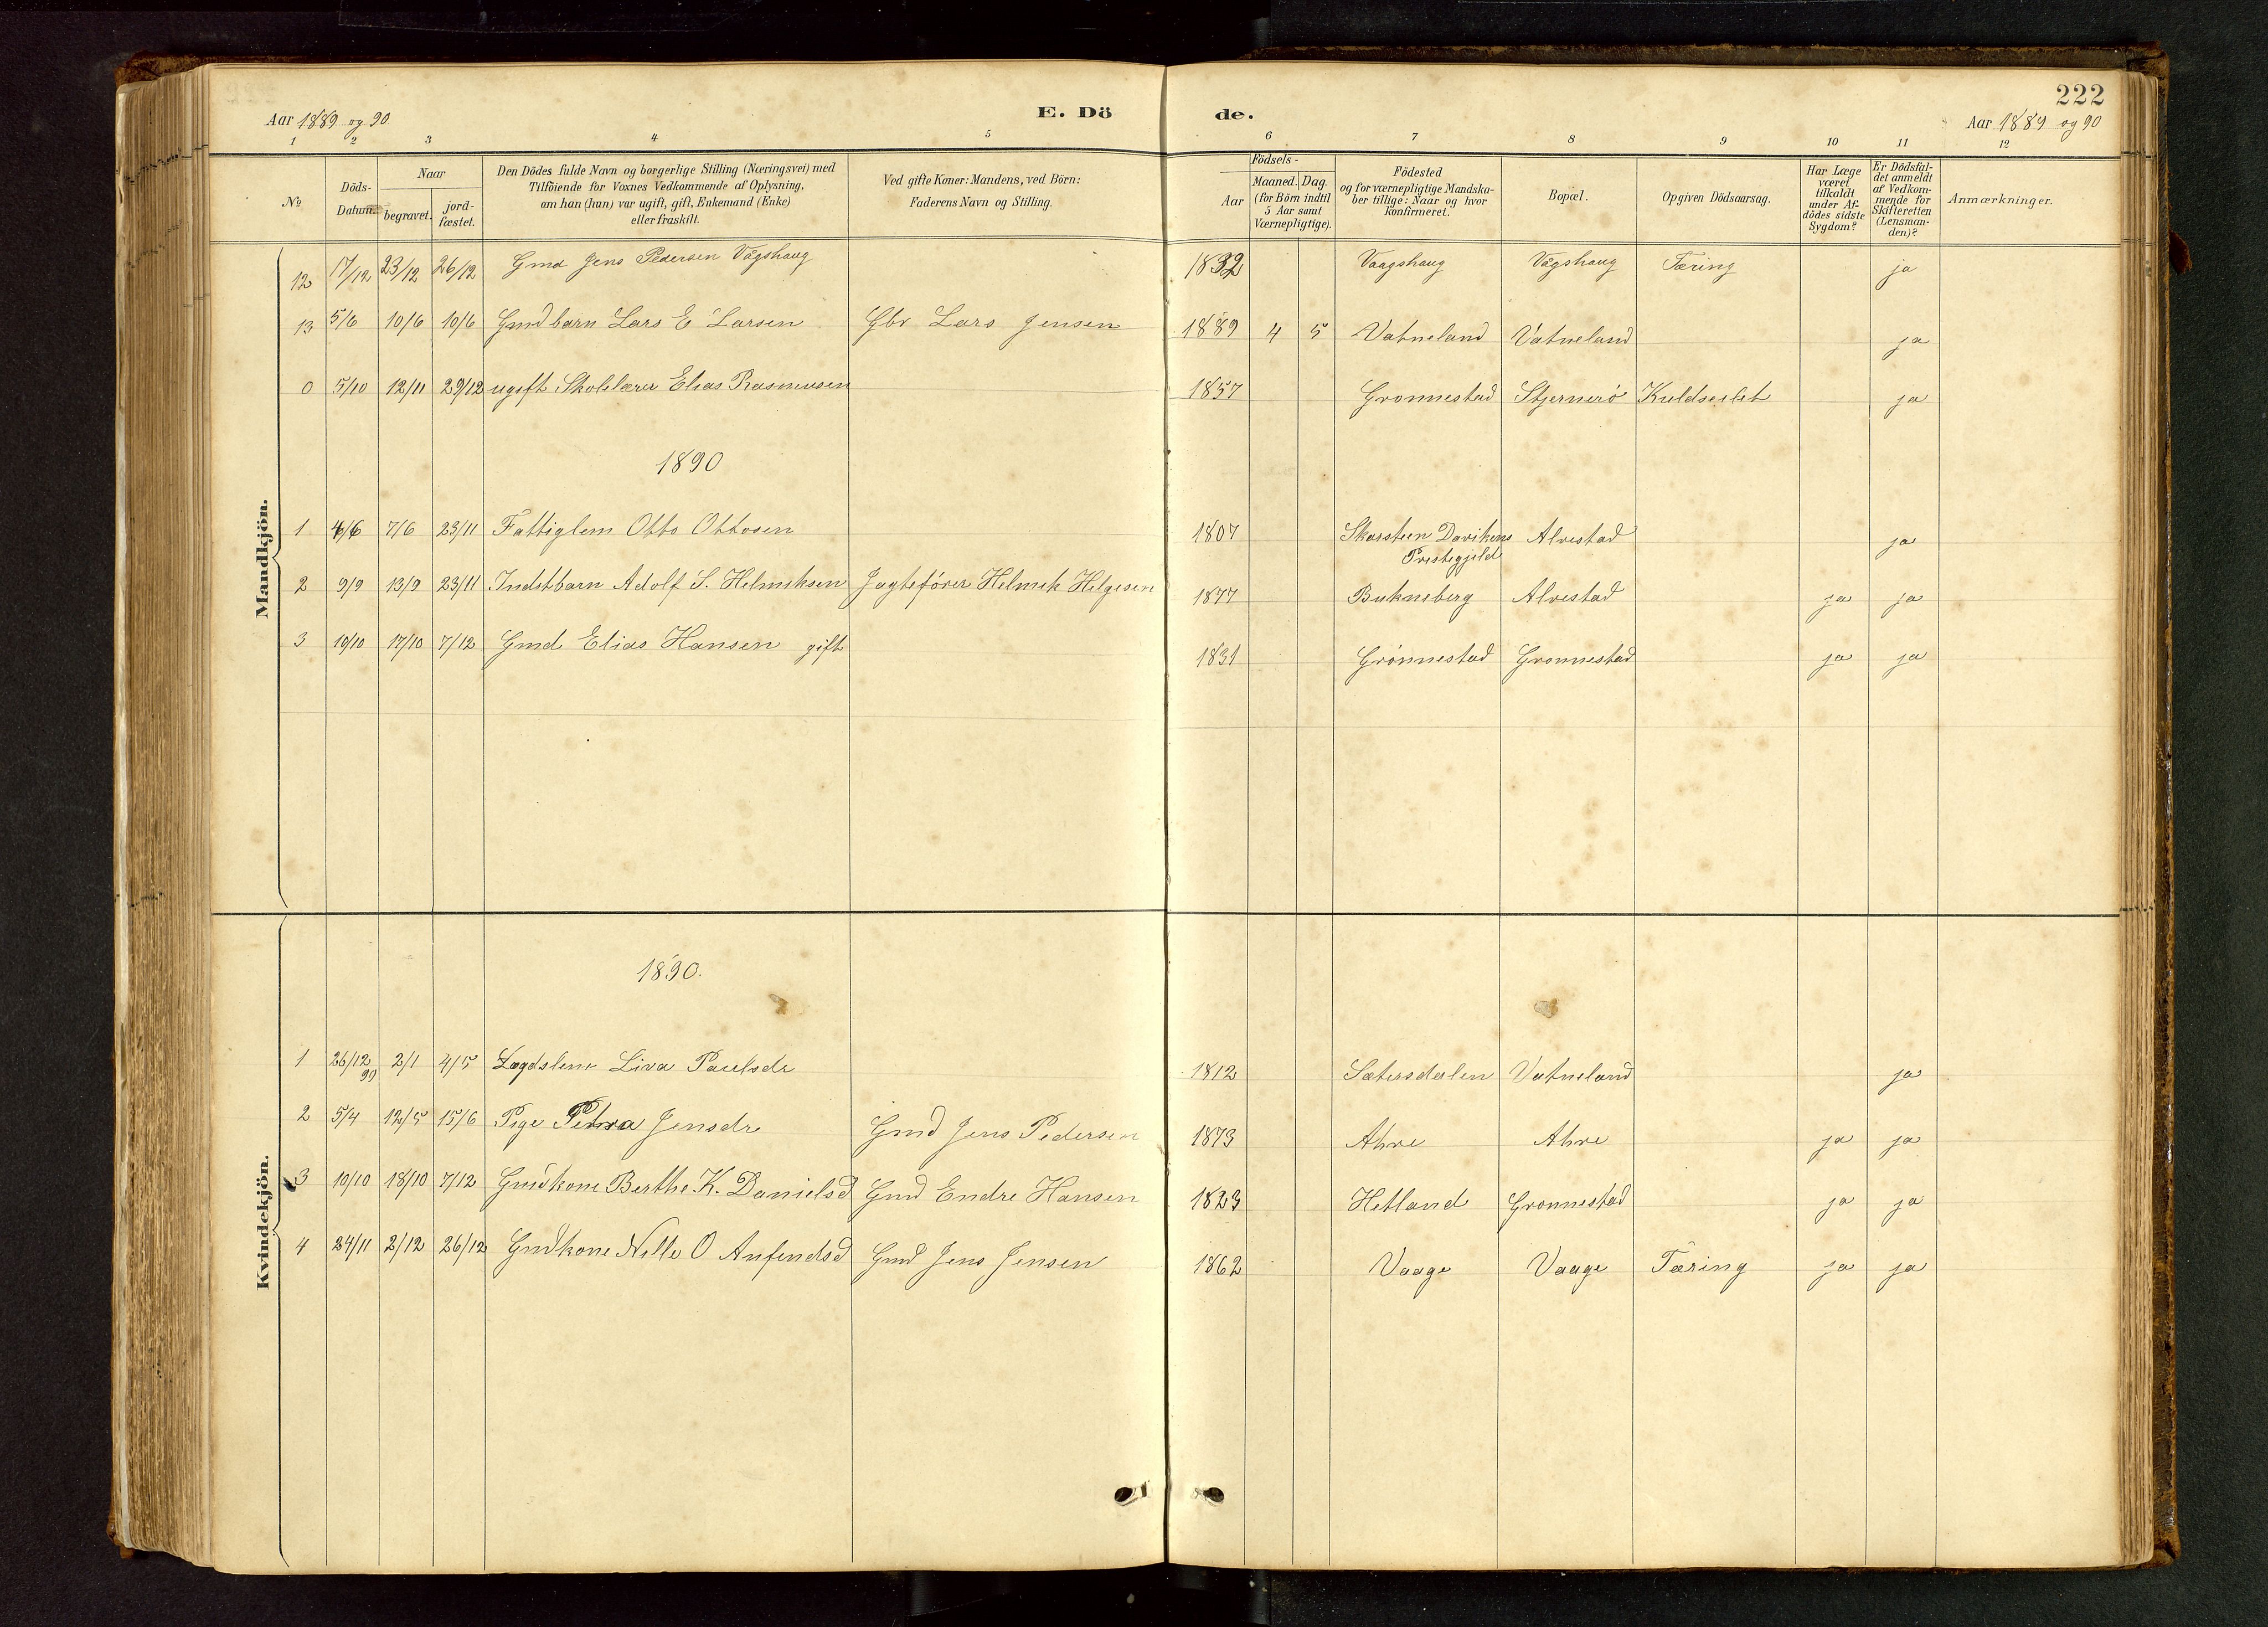 222
Aar 1889 og 90.
E. Dö
de.
Aar 1889 og 90
1 2 3 4 5 6 7 8 9 10 11 12
№
Döds-Datum.
Naar
begravet.
jord-fæstet.
Den Dödes fulde Navn og borgerlige Stilling (Næringsvei) med
Tilföiende for Voxnes Vedkommende af Oplysning,
om han (hun) var ugift, gift, Enkemand (Enke)
eller fraskilt.
Ved gifte Koner: Mandens, ved Börn:
Faderens Navn og Stilling.
Födsels-
Aar
Maaned. Dag.
(for Börn indtil
5 Aar samt
Værnepligtige).
Födested
og for værnepligtige Mandska-
ber tillige: Naar og hvor
konfirmeret.
Bopæl.
Opgiven Dödsaarsag.
Har Læge
været
tilkaldt
under Af-
dödes sidste
Sygdom?
Er Dödsfal-
det anmeldt
af Vedkom-
mende for
Skifteretten
(Lensman-
den)?
Anmærkninger.
Mandkjön.
12 17/12 23/12 26/12 Gmd Jens Pedersen Vågshaug 1832 Vaagshaug Vågshaug Tæring ja
13 5/6 10/6 10/6 Gmdbarn Lars E Larsen Gbr Lars Jensen 1889 4 5 Vatneland Vatneland ja
0 5/10 12/11 29/12 ugift Skolelærer Elias Rasmusen 1857 Gronnestad Stjernerö Kuldseilet ja
1890
1 4/6 7/6 23/11 Fattiglem Otto Ottosen 1807 Skarsteen Davikens Prestegjeld Alvestad ja
2 9/9 13/9 23/11 Indstbarn Adolf S. Helmiksen Jagtefører Helmik Helgesen 1877 Bukneberg Alvestad ja ja
3 10/10 17/10 7/12 Gmd Elias Hansen gift 1831 Grönnestad Gronnestad ja ja
Kvindekjön.
1890.
1 26/12 90 2/1 4/5 Lægdslem Liva Paulsdr 1812 Sætersdalen Vatneland ja
2 5/4 12/5 15/6 Pige Petra Jensdr Gmd Jens Pedersen 1873 Ahre Ahre ja ja
3 10/10 18/10 7/12 Gmdkone Berthe K. Danielsd Gmd Endre Hansen 1823 Hetland Gronnestad ja ja
4 24/11 2/12 26/12 Gmdkone Nille O Anfendsd Gmd Jens Jensen 1862 Vaage Vaage Tæring ja ja